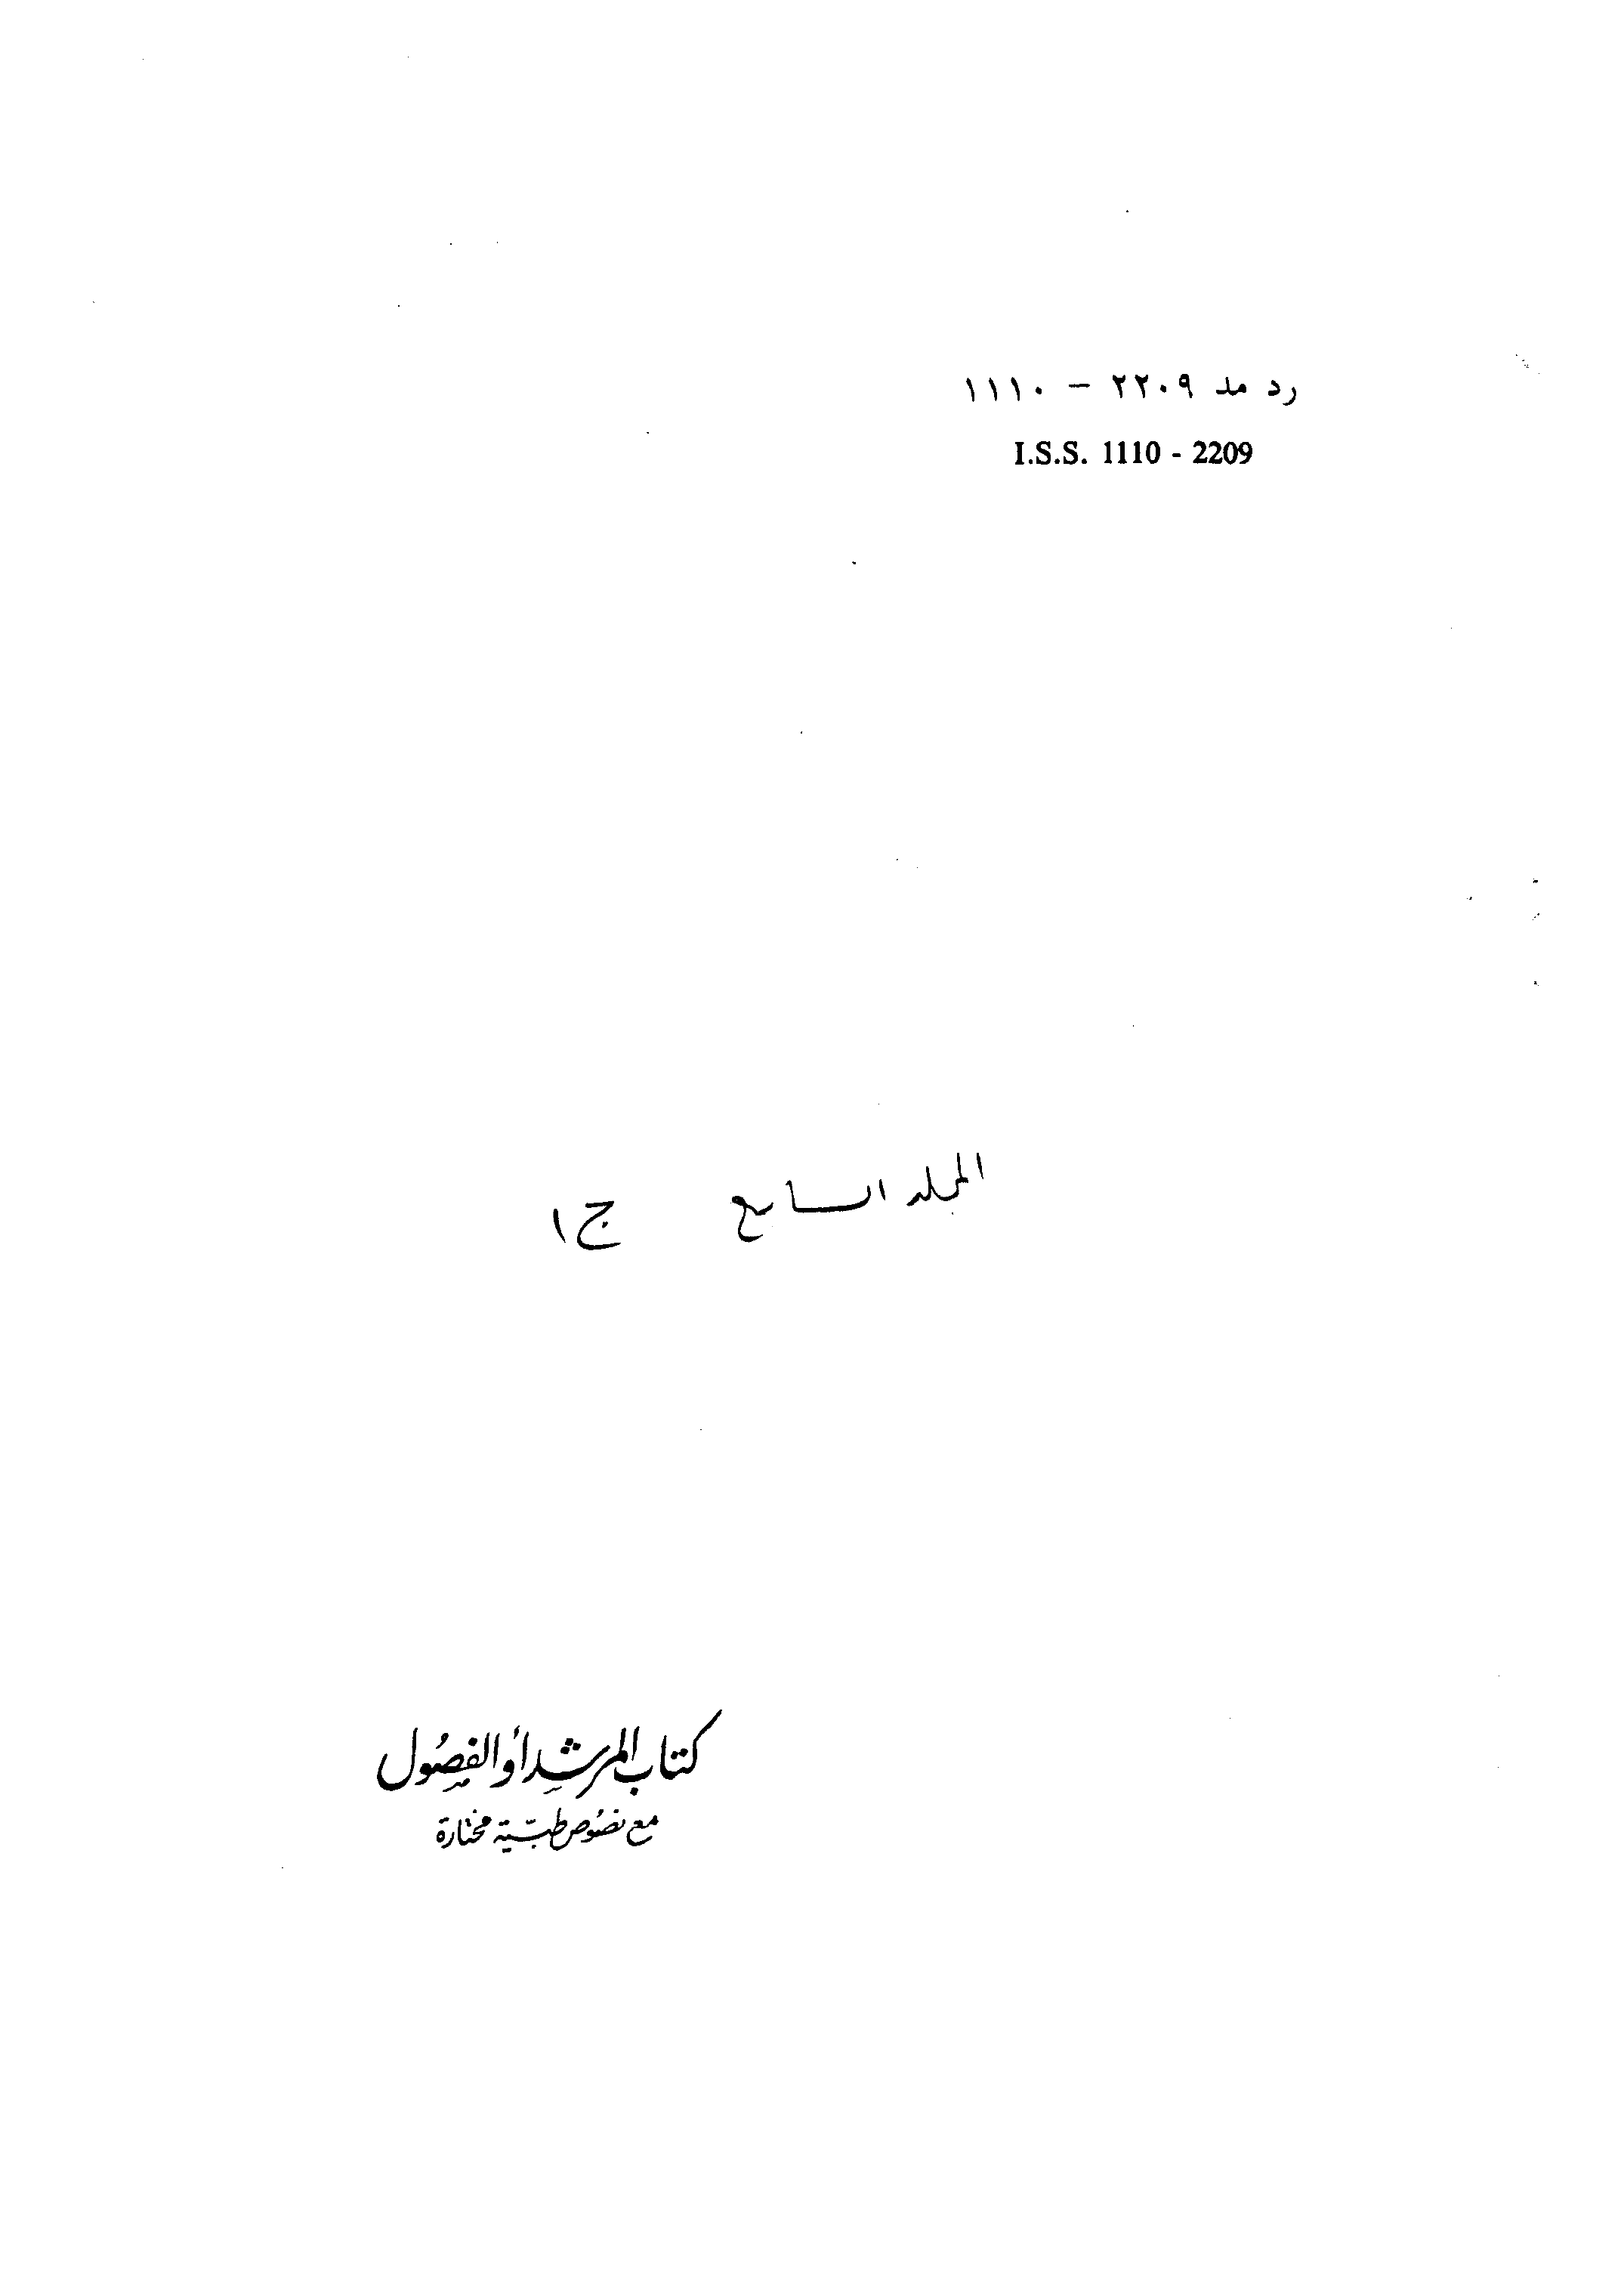 رد مد ٢٢٠٩ – ١١١٠
I.S.S. 1110 - 2209
المجلد السابع ج١
كتاب المرشد أو الفصول
مع نصوص طبية مختارة